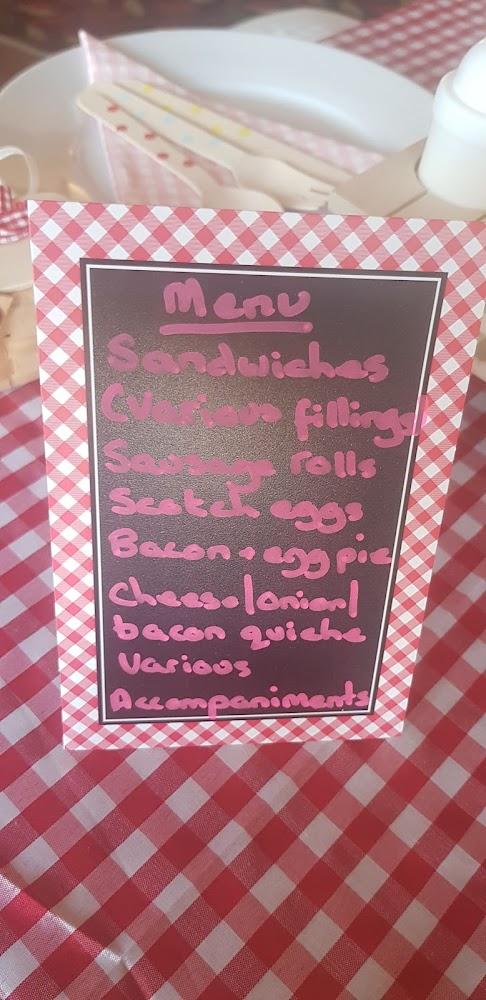 Menu
Sandwiches
(Various fillings)
Sausage rolls
Scotch eggs
Bacon + egg pie
Cheese/onion/
bacon quiche
Various
Accompaniments